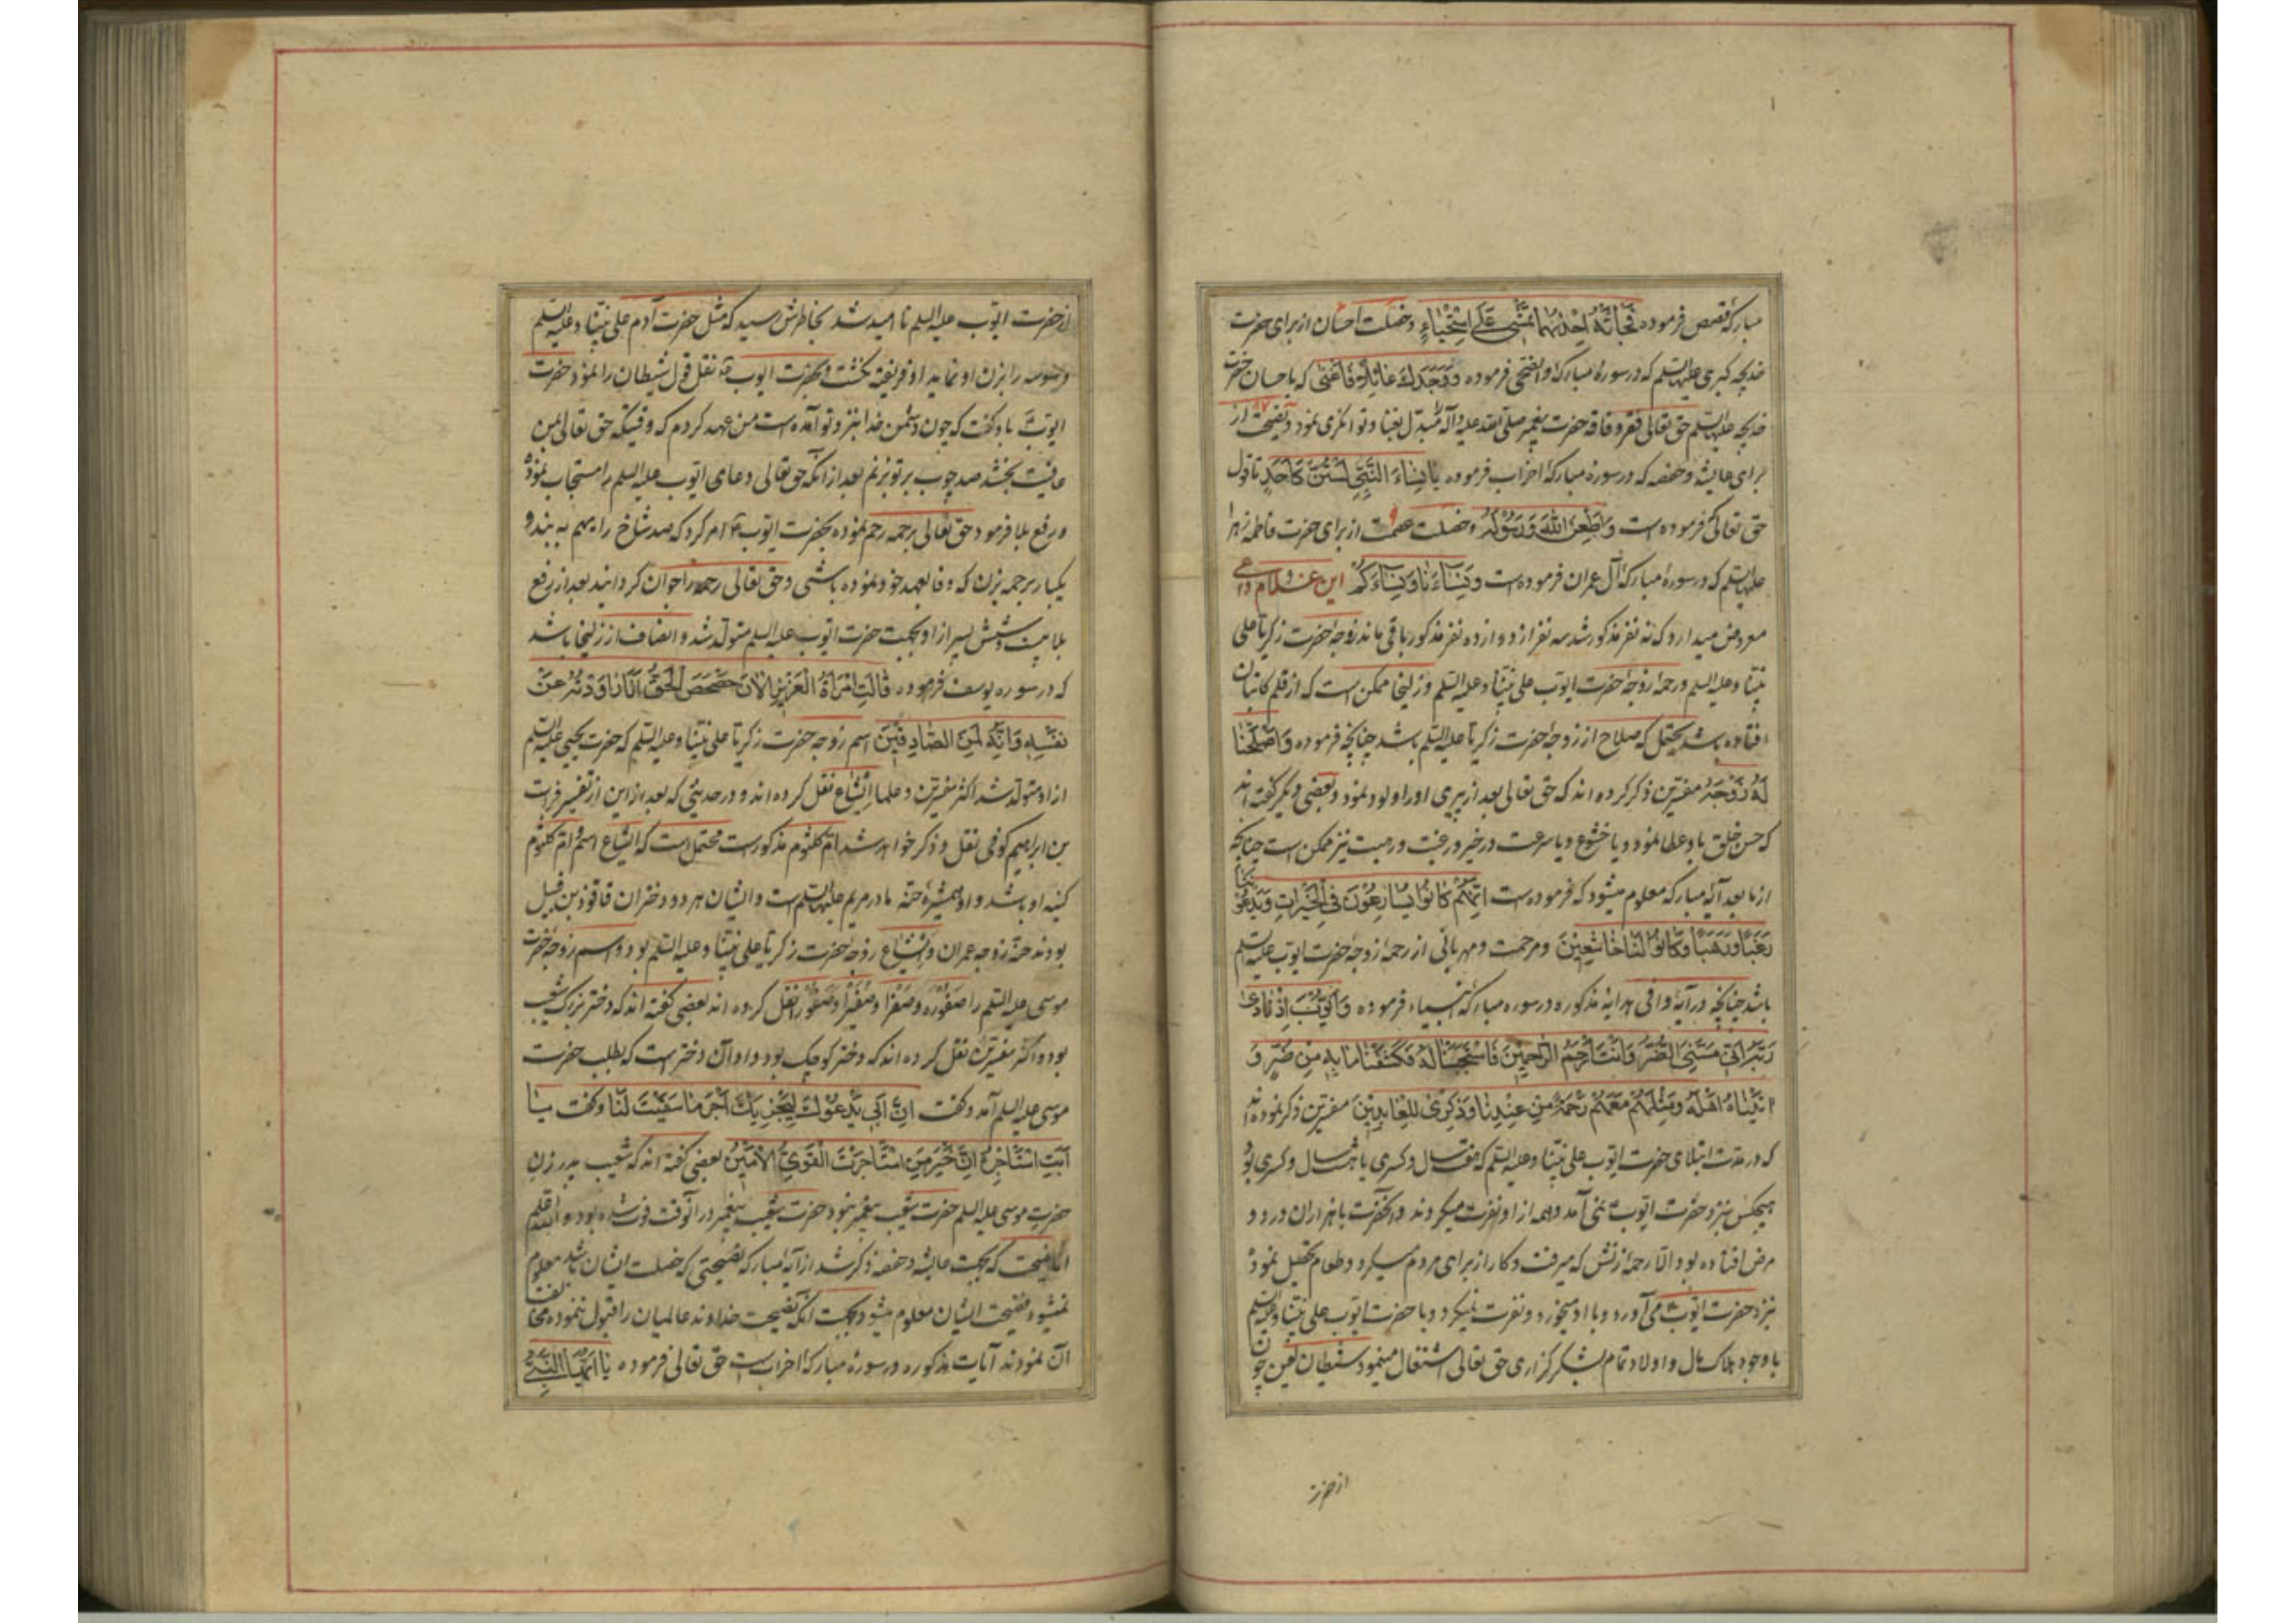 مبارکهٔ قصص فرموده فجائته احدیهما تمشی علی استحیاء و خصلت احسان از برای حضرت
خدیجه کبری علیها السلم که در سورهٔ مبارکهٔ والضحی فرموده و وجدک عائلا فاغنی که باحسان حضرت
خدیجه علیها السلم حق تعالی فقر و فاقه حضرت پیغمبر صلی الله علیه و آله مبدّل بغنا و توانگری نمود و نصیحت از
برای عایشه و حفصه که در سورهٔ مبارکهٔ احزاب فرموده یا نساء النّبیّ لستنّ کاحد تا قول
حق تعالی که فرموده است و اطعن الله و رسوله و خصلت عصمت از برای حضرت فاطمه زهرا
علیها السلم که در سورهٔ مبارکهٔ آل عمران فرموده است و نساءنا و نساءکم این غلام داعی
معروض میدارد که نه نفر مذکور شد سه نفر از دوازده نفر مذکور باقی ماند زوجهٔ حضرت زکریا علی
نبیّنا و علیه السلم و رحمه زوجهٔ حضرت ایّوب علی نبیّنا و علیه السلم و زلیخا ممکن است که از قلم کاتبان
افتاده باشد یحتمل که صلاح از زوجهٔ حضرت زکریا علیه السلم باشد چنانچه فرموده و اصلحنا
له زوجه مفسّرین ذکر کرده اند که حق تعالی بعد از پیری او را ولود نمود و بعضی دیگر گفته اند
که حسن خلق باو عطا نمود و یا خشوع و یا سرعت در خیر و رغبت و رهبت نیز ممکن است چنانچه
از ما بعد آیهٔ مبارکه معلوم میشود که فرموده است انّهم کانوا یسارعون فی الخیرات و یدعوننا
رغبا و رهبا و کانوا لنا خاشعین و مرحمت و مهربانی از رحمه زوجهٔ حضرت ایّوب علیه السلم
باشد چنانچه در آیهٔ وافی هدایهٔ مذکوره در سوره مبارکهٔ انبیاء فرموده و ایّوب اذ نادی
ربّه انّی مسّنی الضّرّ و انت ارحم الرّاحمین فاستجبنا له فکشفنا ما به من ضرّ و
اتیناه اهله و مثلهم معهم رحمة من عندنا و ذکری للعابدین مفسرین ذکر نموده اند
که در مدّت ابتلای حضرت ایّوب علی نبیّنا و علیه السلم که هفت سال و کسری یا هشت سال و کسری بود
هیچکس نزد حضرت ایّوب نمی آمد و همه از او نفرت میکردند و آنحضرت با هزاران درد و
مرض افتاده بود الّا رحمه زنش که میرفت و کار از برای مردم میکرد و طعام تحصیل نموده
نزد حضرت ایّوب می آورد و با او میخورد و نفرت نمیکرد و با حضرت ایّوب علی نبیّنا و علیه السلم
با وجود هلاک مال و اولاد تمام بشکرگزاری حق تعالی اشتغال مینمود شیطان لعین چون
از حضرت
از حضرت ایّوب علیه السلم ناامید شد بخاطرش رسید که مثل حضرت آدم علی نبیّنا و علیه السلم
وسوسه را بزن او نماید او فریفته نگشت و بحضرت ایوب نقل قول شیطان را نمود حضرت
ایّوب باو گفت که چون دشمن خدا بنزد تو آمده است من عهد کردم که وقتیکه حق تعالی بمن
عافیت بخشد صد چوب بر تو بزنم بعد از آنکه حق تعالی دعای ایّوب علیه السلم را مستجاب نموده
و رفع بلا فرمود حق تعالی بر رحمه رحم نموده بحضرت ایّوب امر کرد که صد شاخ را بهم به بند و
یکبار بر رحمه بزن که وفا بعهد خود نموده باشی و حق تعالی رحمه را جوان گردانید بعد از رفع
بلا بیست و شش پسر از او بجهت حضرت ایّوب علیه السلم متولّد شد و انصاف از زلیخا باشد
که در سوره یوسف فرموده قالت امرأة العزیز الان حصحص الحقّ انا راودته عن
نفسه و انّه لمن الصّادقین اسم زوجه حضرت زکریا علی نبیّنا و علیه السلم که حضرت یحیی علیه السلم
از او متولّد شد اکثر مفسّرین و علما ایشاع نقل کرده اند و در حدیثی که بعد از این از تفسیر فرات
بن ابراهیم کوفی نقل و ذکر خواهد شد امّ کلثوم مذکور است محتمل است که ایشاع اسم و امّ کلثوم
کنیه او باشد و او همشیرهٔ حنّه مادر مریم علیها السلم است و ایشان هر دو دختران فاقوذ بن قبیل
بودند حنّه زوجه عمران و ایشاع زوجهٔ حضرت زکریا علی نبیّنا و علیه السلم بود و اسم زوجهٔ حضرت
موسی علیه السلم را صفوره و صفرا و صفیرا و صفورا نقل کرده اند بعضی گفته اند که دختر بزرگ شعیب
بود و اکثر مفسّرین نقل کرده اند که دختر کوچک بود و او آن دختر است که بطلب حضرت
موسی علیه السلم آمد و گفت انّ ابی یدعوک لیجزیک اجر ما سقیت لنا و گفت یا
ابت استاجره انّ خیر من استاجرت القویّ الامین بعضی گفته اند که شعیب پدر زن
حضرت موسی علیه السلم حضرت شعیب پیغمبر نبود حضرت شعیب پیغمبر در آنوقت فوت شده بود و الله اعلم
امّا نصیحت که بجهت عایشه و حفصه ذکر شد از آیهٔ مبارکه نصیحتی که خصلت ایشان باشد معلوم
نمیشود فضیحت ایشان معلوم میشود بجهت آنکه نصیحت خداوند عالمیان را قبول ننموده مخالفت
آن نمودند آیات مذکوره در سورهٔ مبارکهٔ احزاب است حق تعالی فرموده یا ایّها النّبیّ